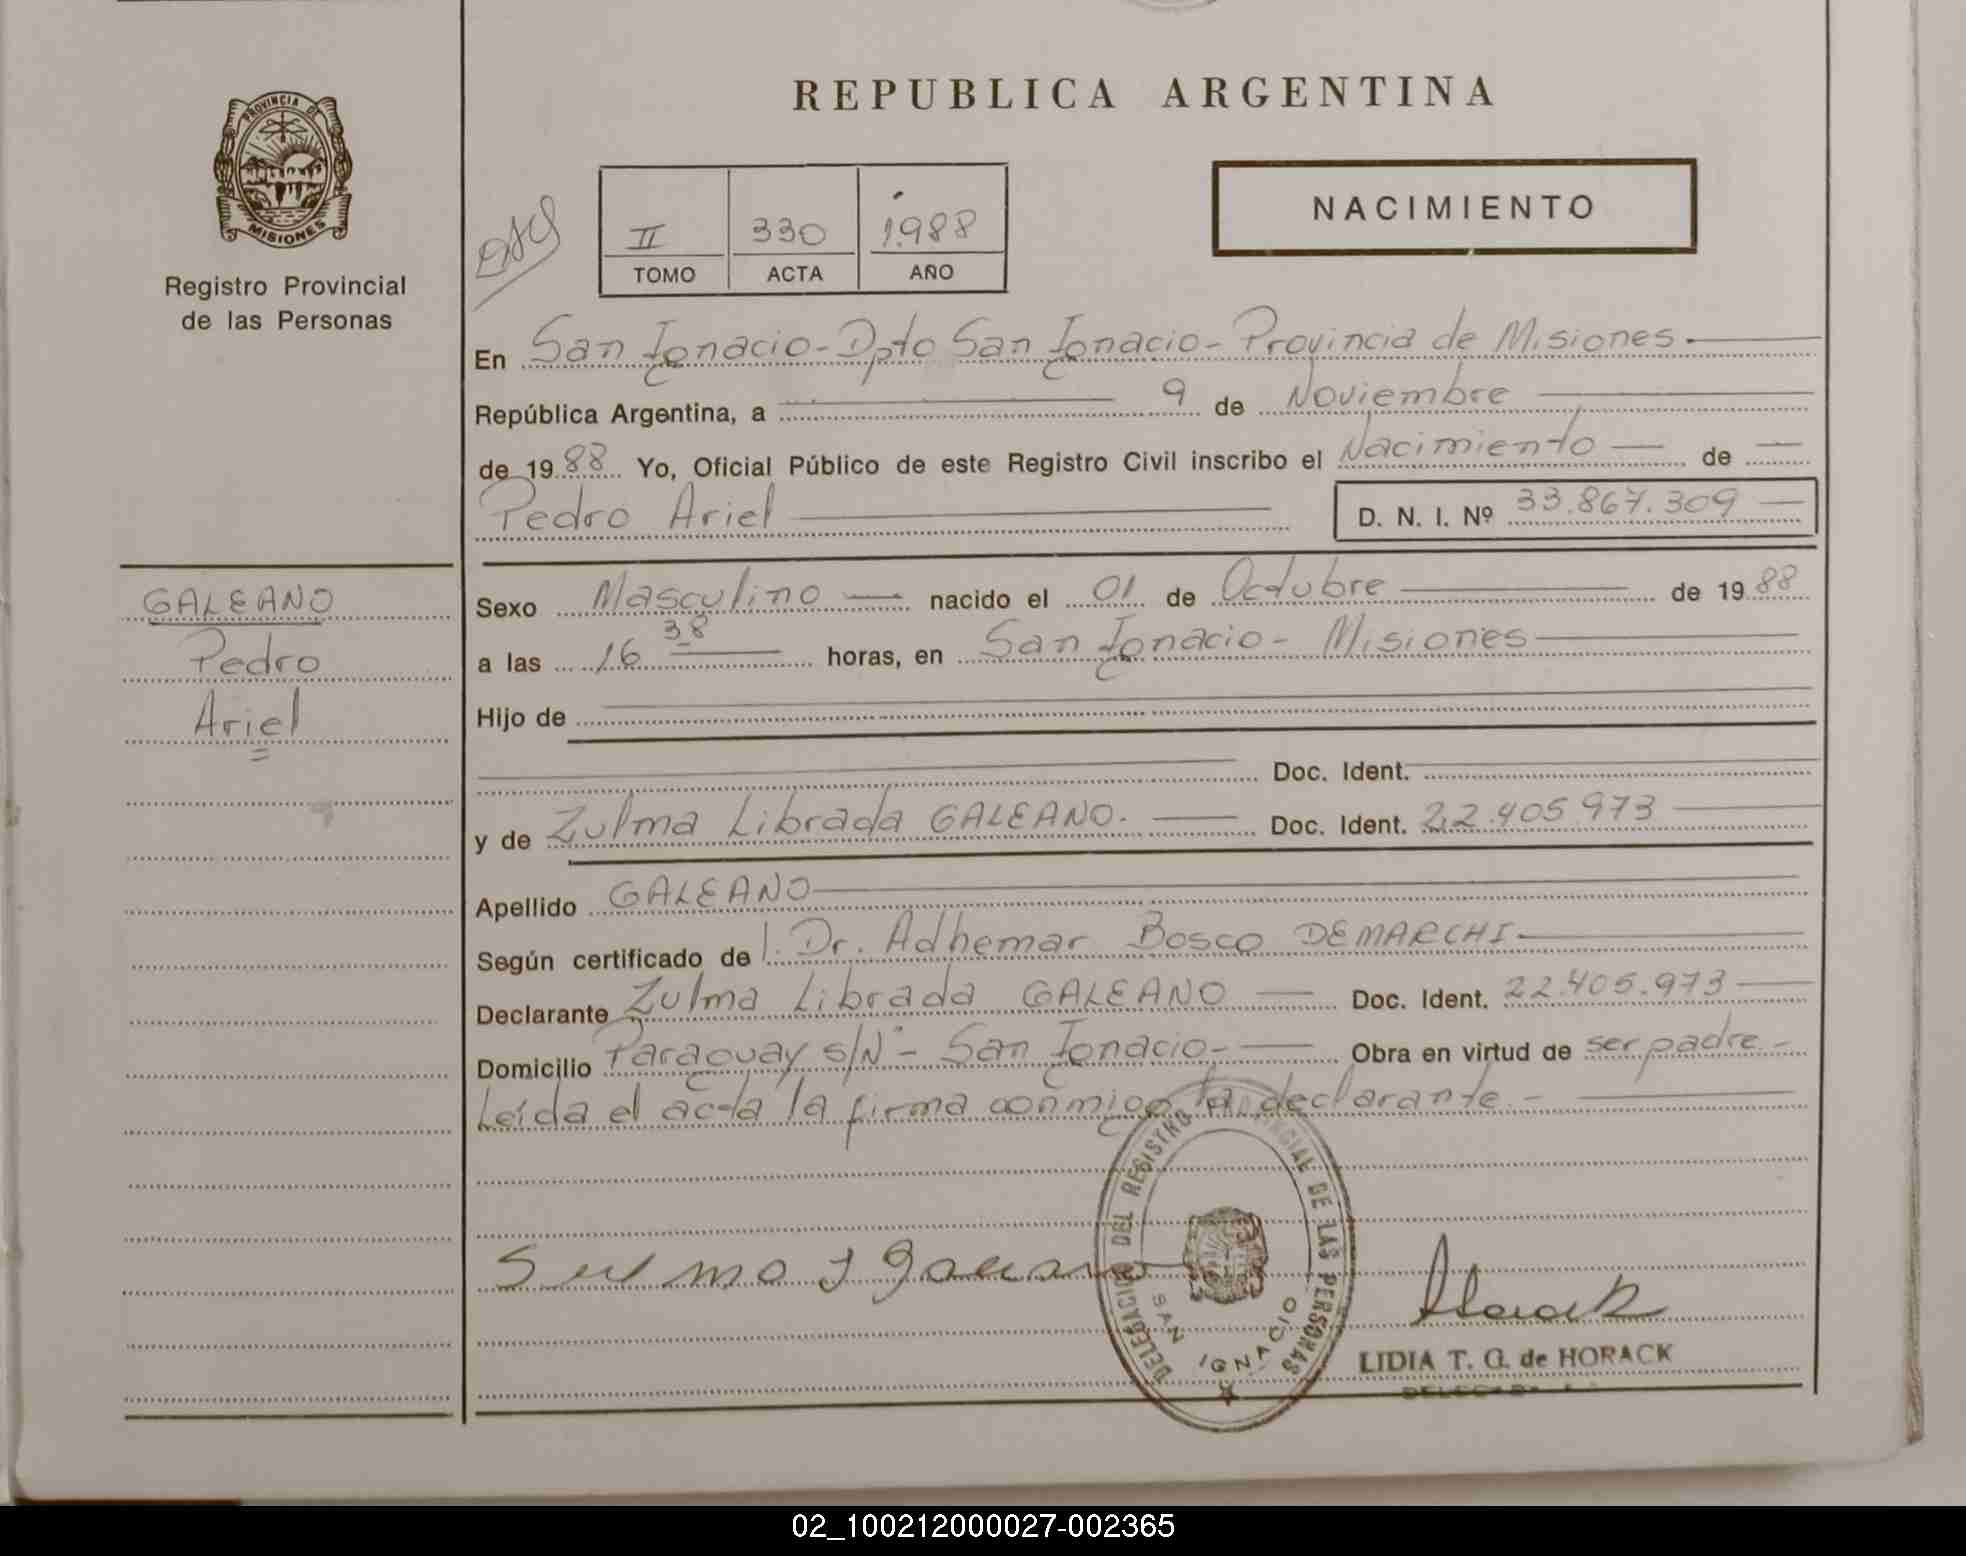 REPUBLICA ARGENTINA
PROVINCIA DE
MISIONES
Registro Provincial
de las Personas
II 330 1.988
TOMO ACTA AÑO
NACIMIENTO
En San Ignacio - Dpto San Ignacio - Provincia de Misiones.
República Argentina, a 9 de Noviembre
de 19 88 Yo, Oficial Público de este Registro Civil inscribo el Nacimiento de
Pedro Ariel D. N. I. Nº 33.867.309
GALEANO
Pedro
Ariel
Sexo Masculino nacido el 01 de Octubre de 19 88
a las 16 38 horas, en San Ignacio - Misiones
Hijo de
Doc. Ident.
y de Zulma Librada GALEANO. Doc. Ident. 22.405 973
Apellido GALEANO
Según certificado de Dr. Adhemar Bosco DEMARCHI
Declarante Zulma Librada GALEANO Doc. Ident. 22.405.973
Domicilio Paraguay s/Nº - San Ignacio - Obra en virtud de ser padre -
Leída el acta la firma conmigo la declarante. -
DELEGACION DEL REGISTRO PROVINCIAL DE LAS PERSONAS
SAN IGNACIO
LIDIA T. G. de HORACK
02_100212000027-002365